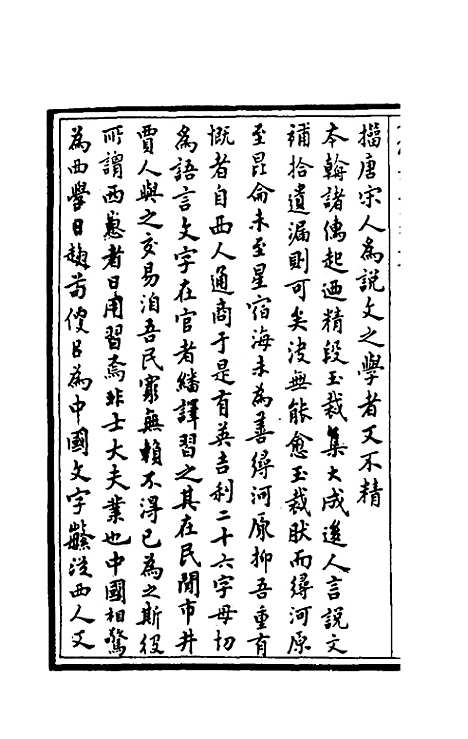 擂唐宋人為說文之學者又不精
本翰諸儁起迺精段玉裁集大成進人言說文
補拾遺漏則可矣没無能愈玉裁肰而㝷河原
至昆侖未至星宿海未為善㝷河原抑吾重有
慨者自西人通商于是有英吉利二十六字母切
為語言文字在官者繙譯習之其在民閒市井
賈人與之交易洎吾民窮無賴不得已為之斯役
所謂西崽者日用習焉非士大夫業也中國相驚
為西學日趨苟傻㠯為中國文字蘩從西人文